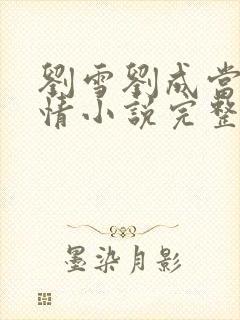 劉雪劉成當
情小說完整
墨染月影